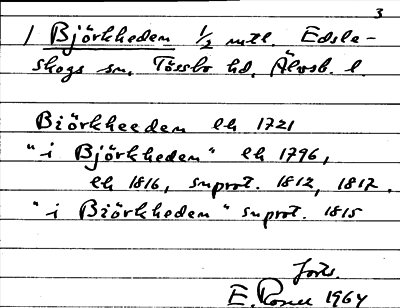 3
1 Björkheden 1/2 mtl. Edsle-
skogs sn, Tössbo hd, Älvsb. l.
Biörkheeden lh 1721
"i Björkheden" lh 1796,
lh 1816, snprot. 1812, 1817.
"i Biörkheden" snprot. 1815
forts.
E. Rosell 1964